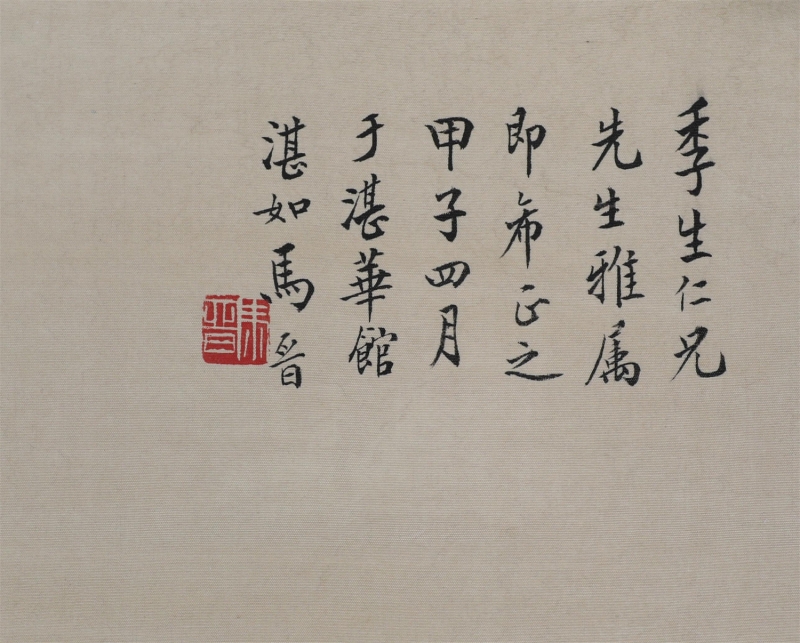 季生仁兄
先生雅属
即希正之
甲子四月
于湛華館
湛如馬晋